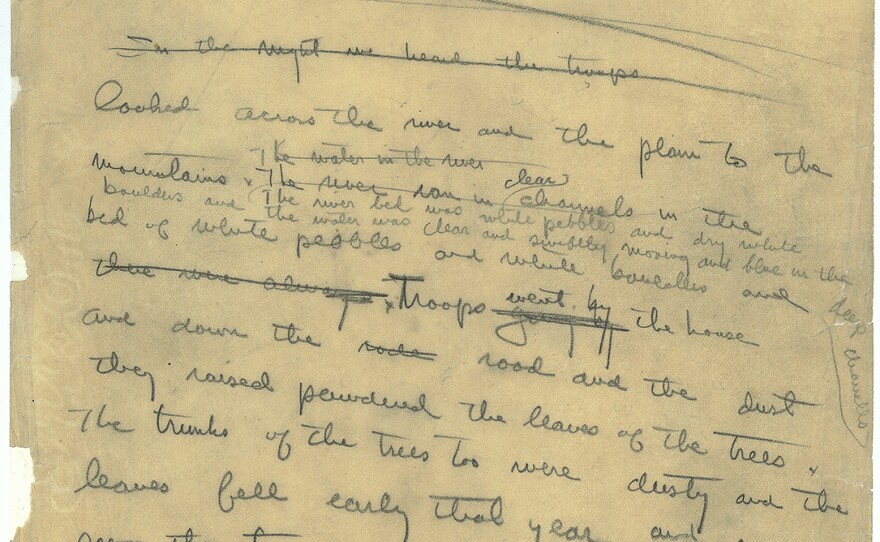 In the night we heard the troops
looked across the river and the plain to the
The water in the river
mountains. The river ran in clear channels in the
boulders and The river bed was white pebbles and dry white
the water was clear and swiftly moving and blue in the
bed of white pebbles and white boulders and
deep channells
there were always Troops went by going by the house
and down the rode road and the dust
they raised powdered the leaves of the trees.
The trunks of the trees too were dusty and the
leaves fell early that year and